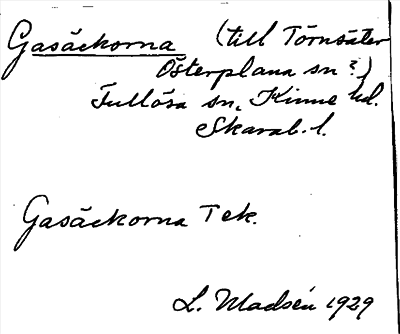 Gasäckorna (till Törnsäter
Österplana sn?)
Fullösa sn, Kinne hd.
Skarab. l.
Gasäckorna Tek.
L. Madsén 1929